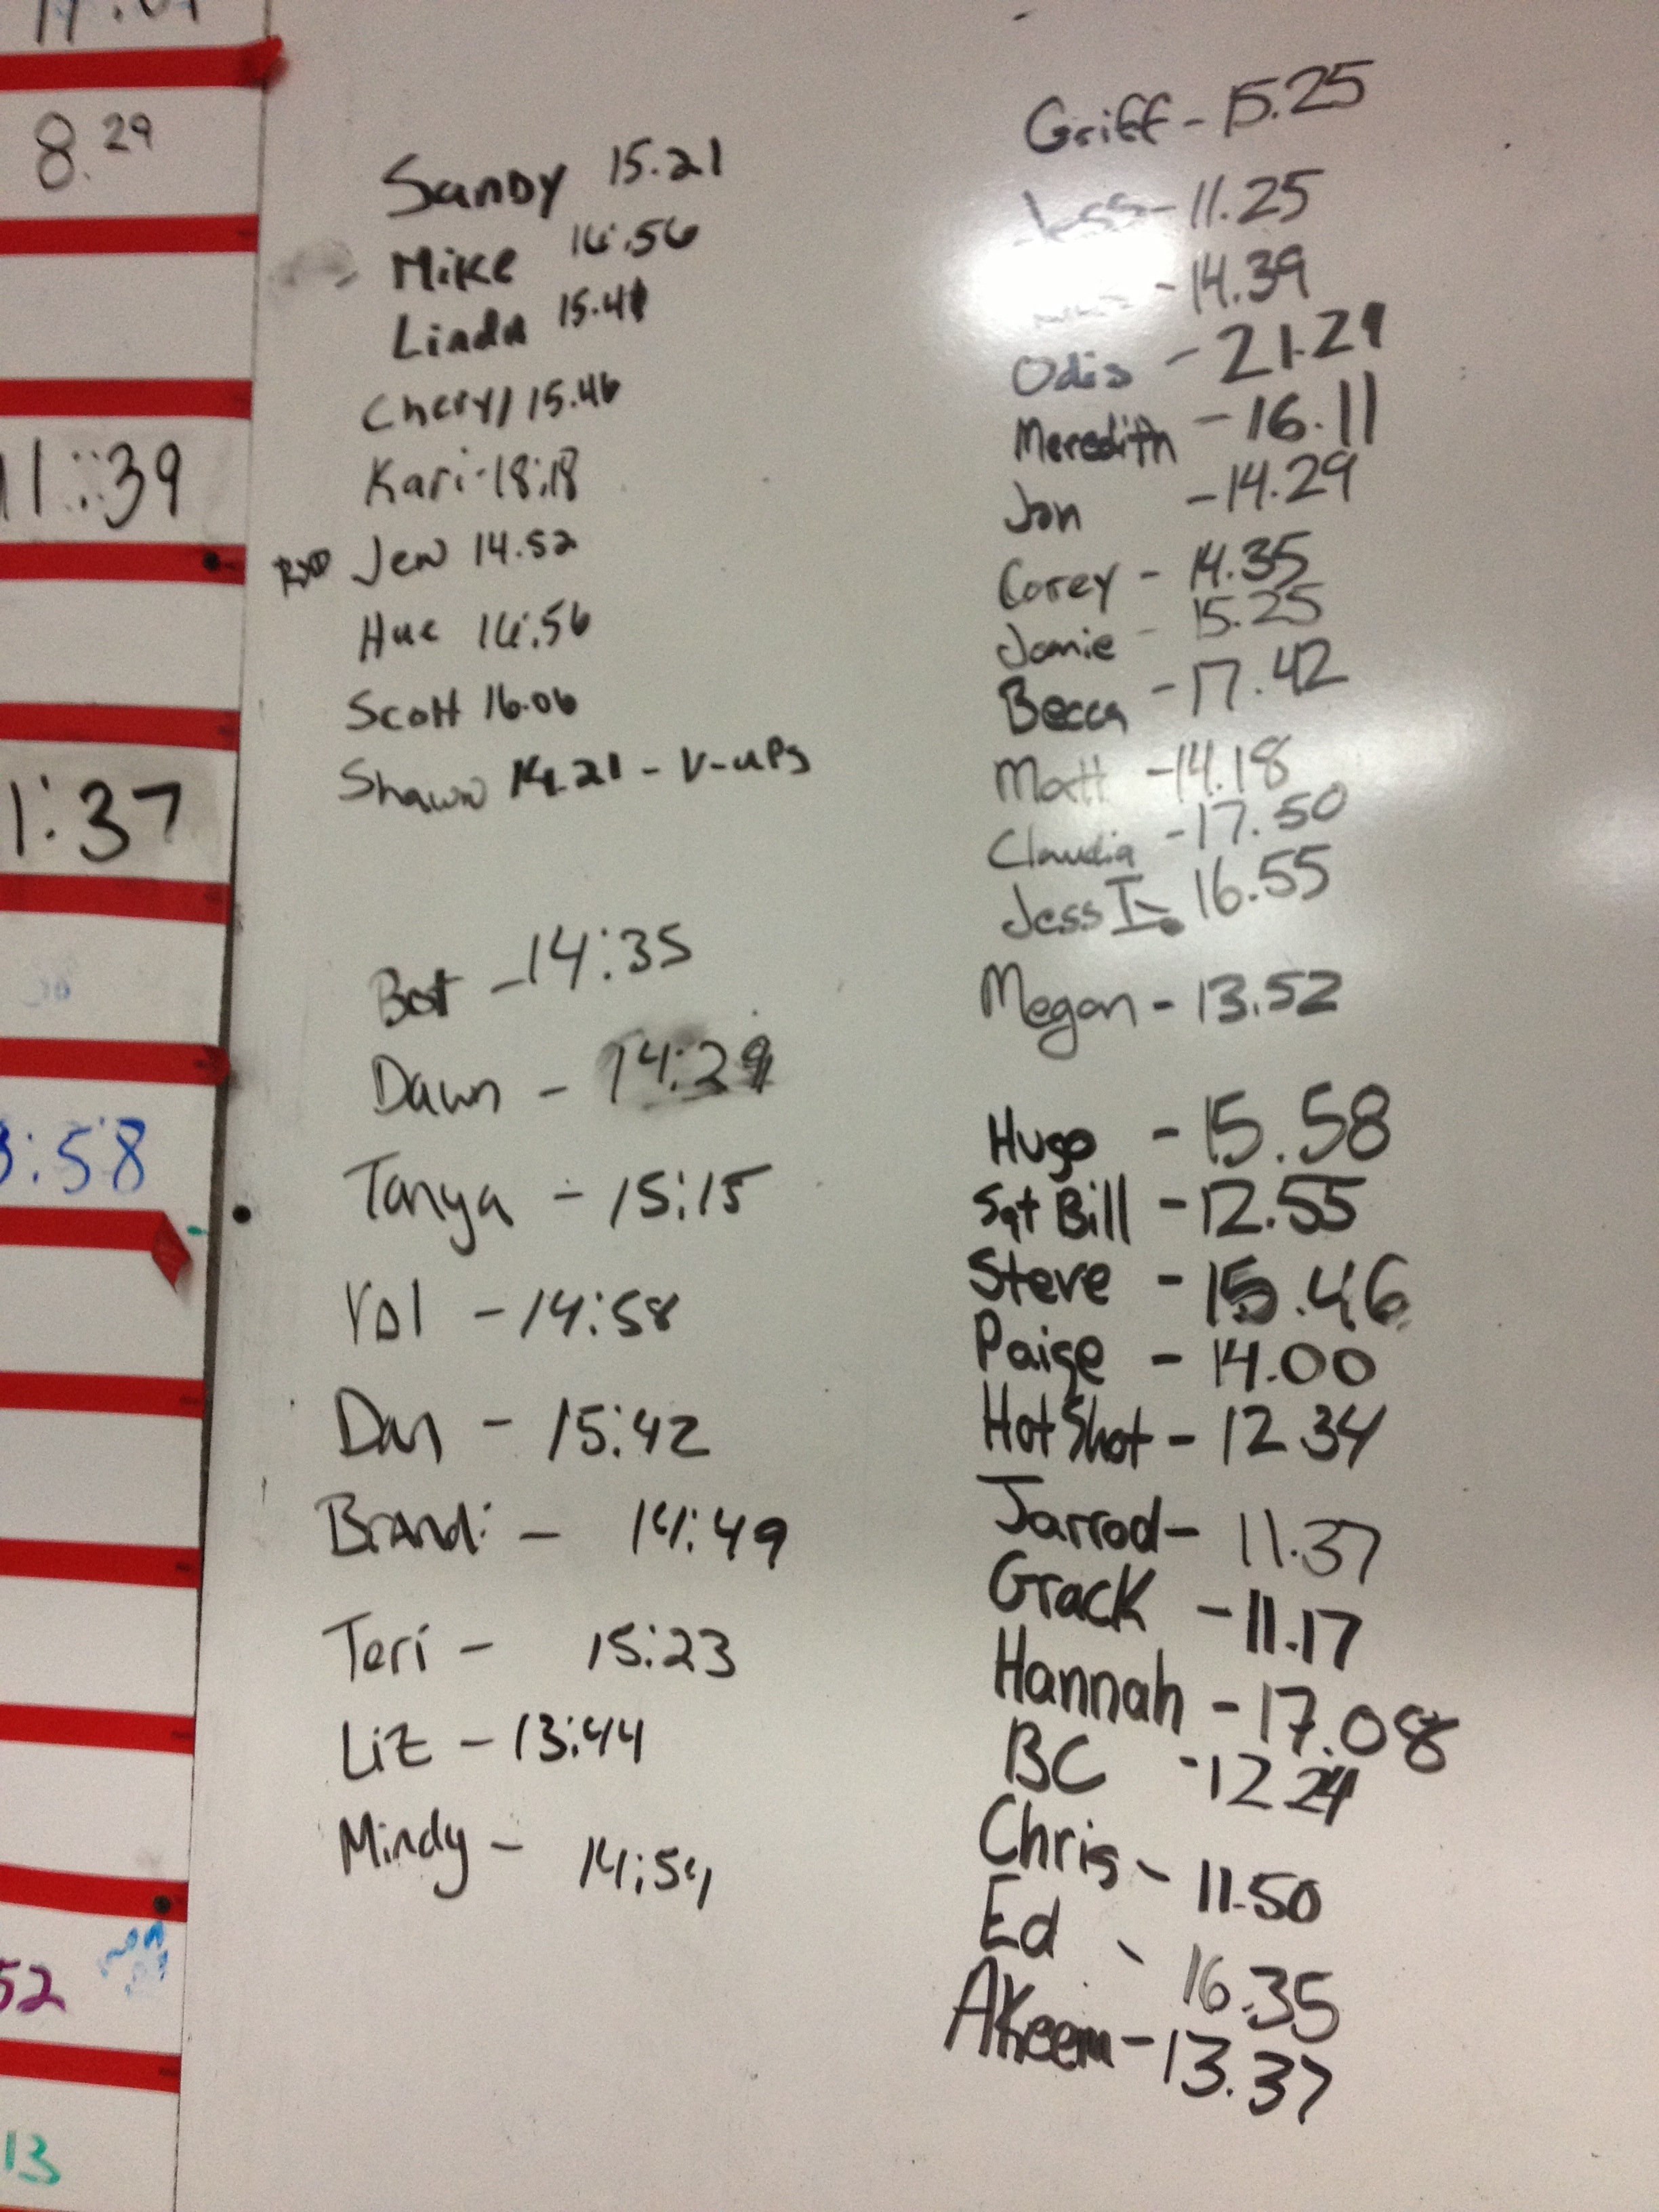 8.29
11:39
1:37
:58
52
13
Sandy 15.21
Mike 14:56
Linda 15.41
Cheryl 15.46
Kari-18:18
RXD Jen 14.52
Hue 14:56
Scott 16.06
Shawn 14.21 - V-uPs
- 14:35
Dawn - 14:29
Tanya - 15:15
Val - 14:58
Dan - 15:42
Brandi - 14:49
Teri - 15:23
Liz - 13:44
Mindy - 14:54
Griff - 15.25
Jess - 11.25
- 14.39
Odis - 21.21
Meredith - 16.11
Jon - 14.29
Corey - 14.35
Jamie - 15.25
Becca - 17.42
Matt - 14.18
Claudia - 17.50
Jess I. 16.55
Megan - 13.52
Hugo - 15.58
Sgt Bill - 12.55
Steve - 15.46
Paige - 14.00
Hot Shot - 12.34
Jarrod - 11.37
Grack - 11.17
Hannah - 17.08
BC - 12.24
Chris - 11.50
Ed - 16.35
AKeem - 13.37